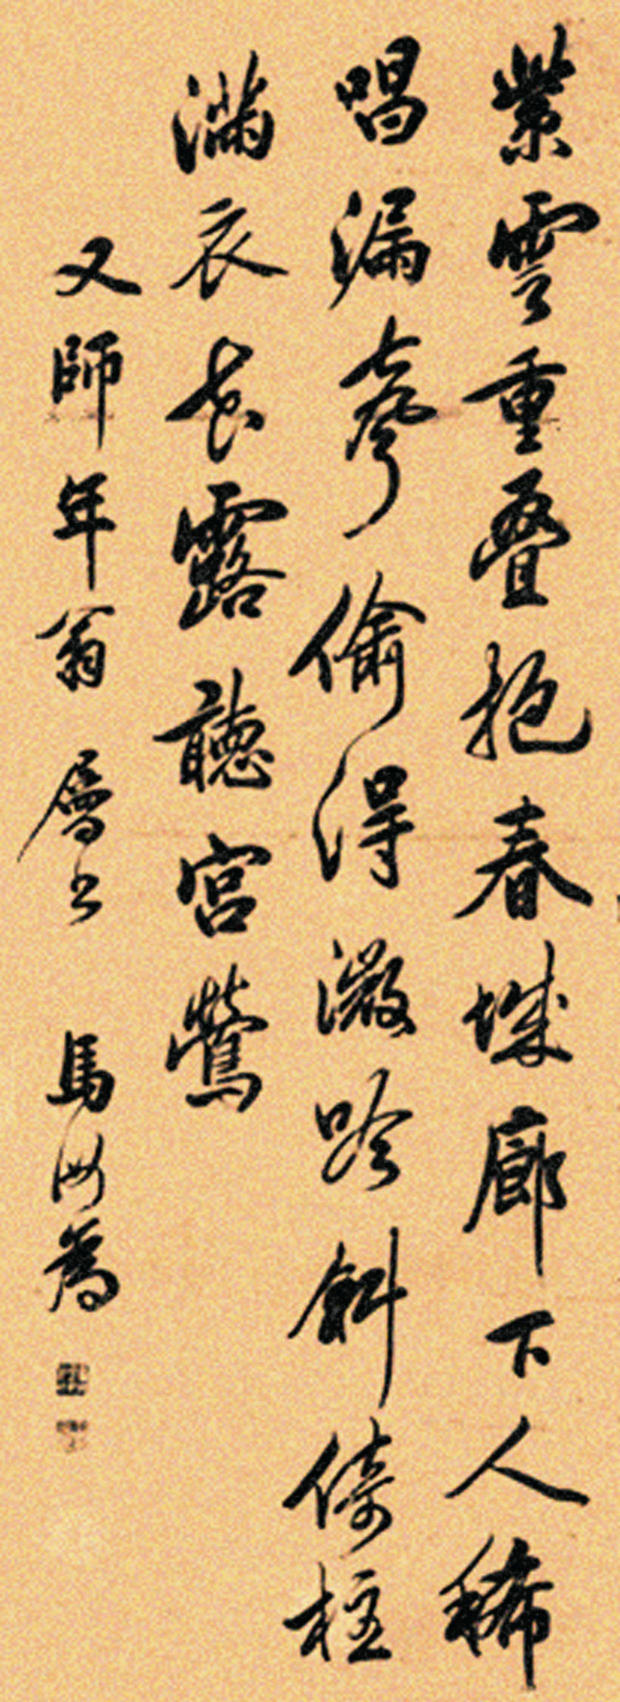 紫雲重叠抱春城廊下人稀
唱漏聲偷得微吟斜倚柱
滿衣花露聽宮鶯
又師年翁 屬書 馬汝為